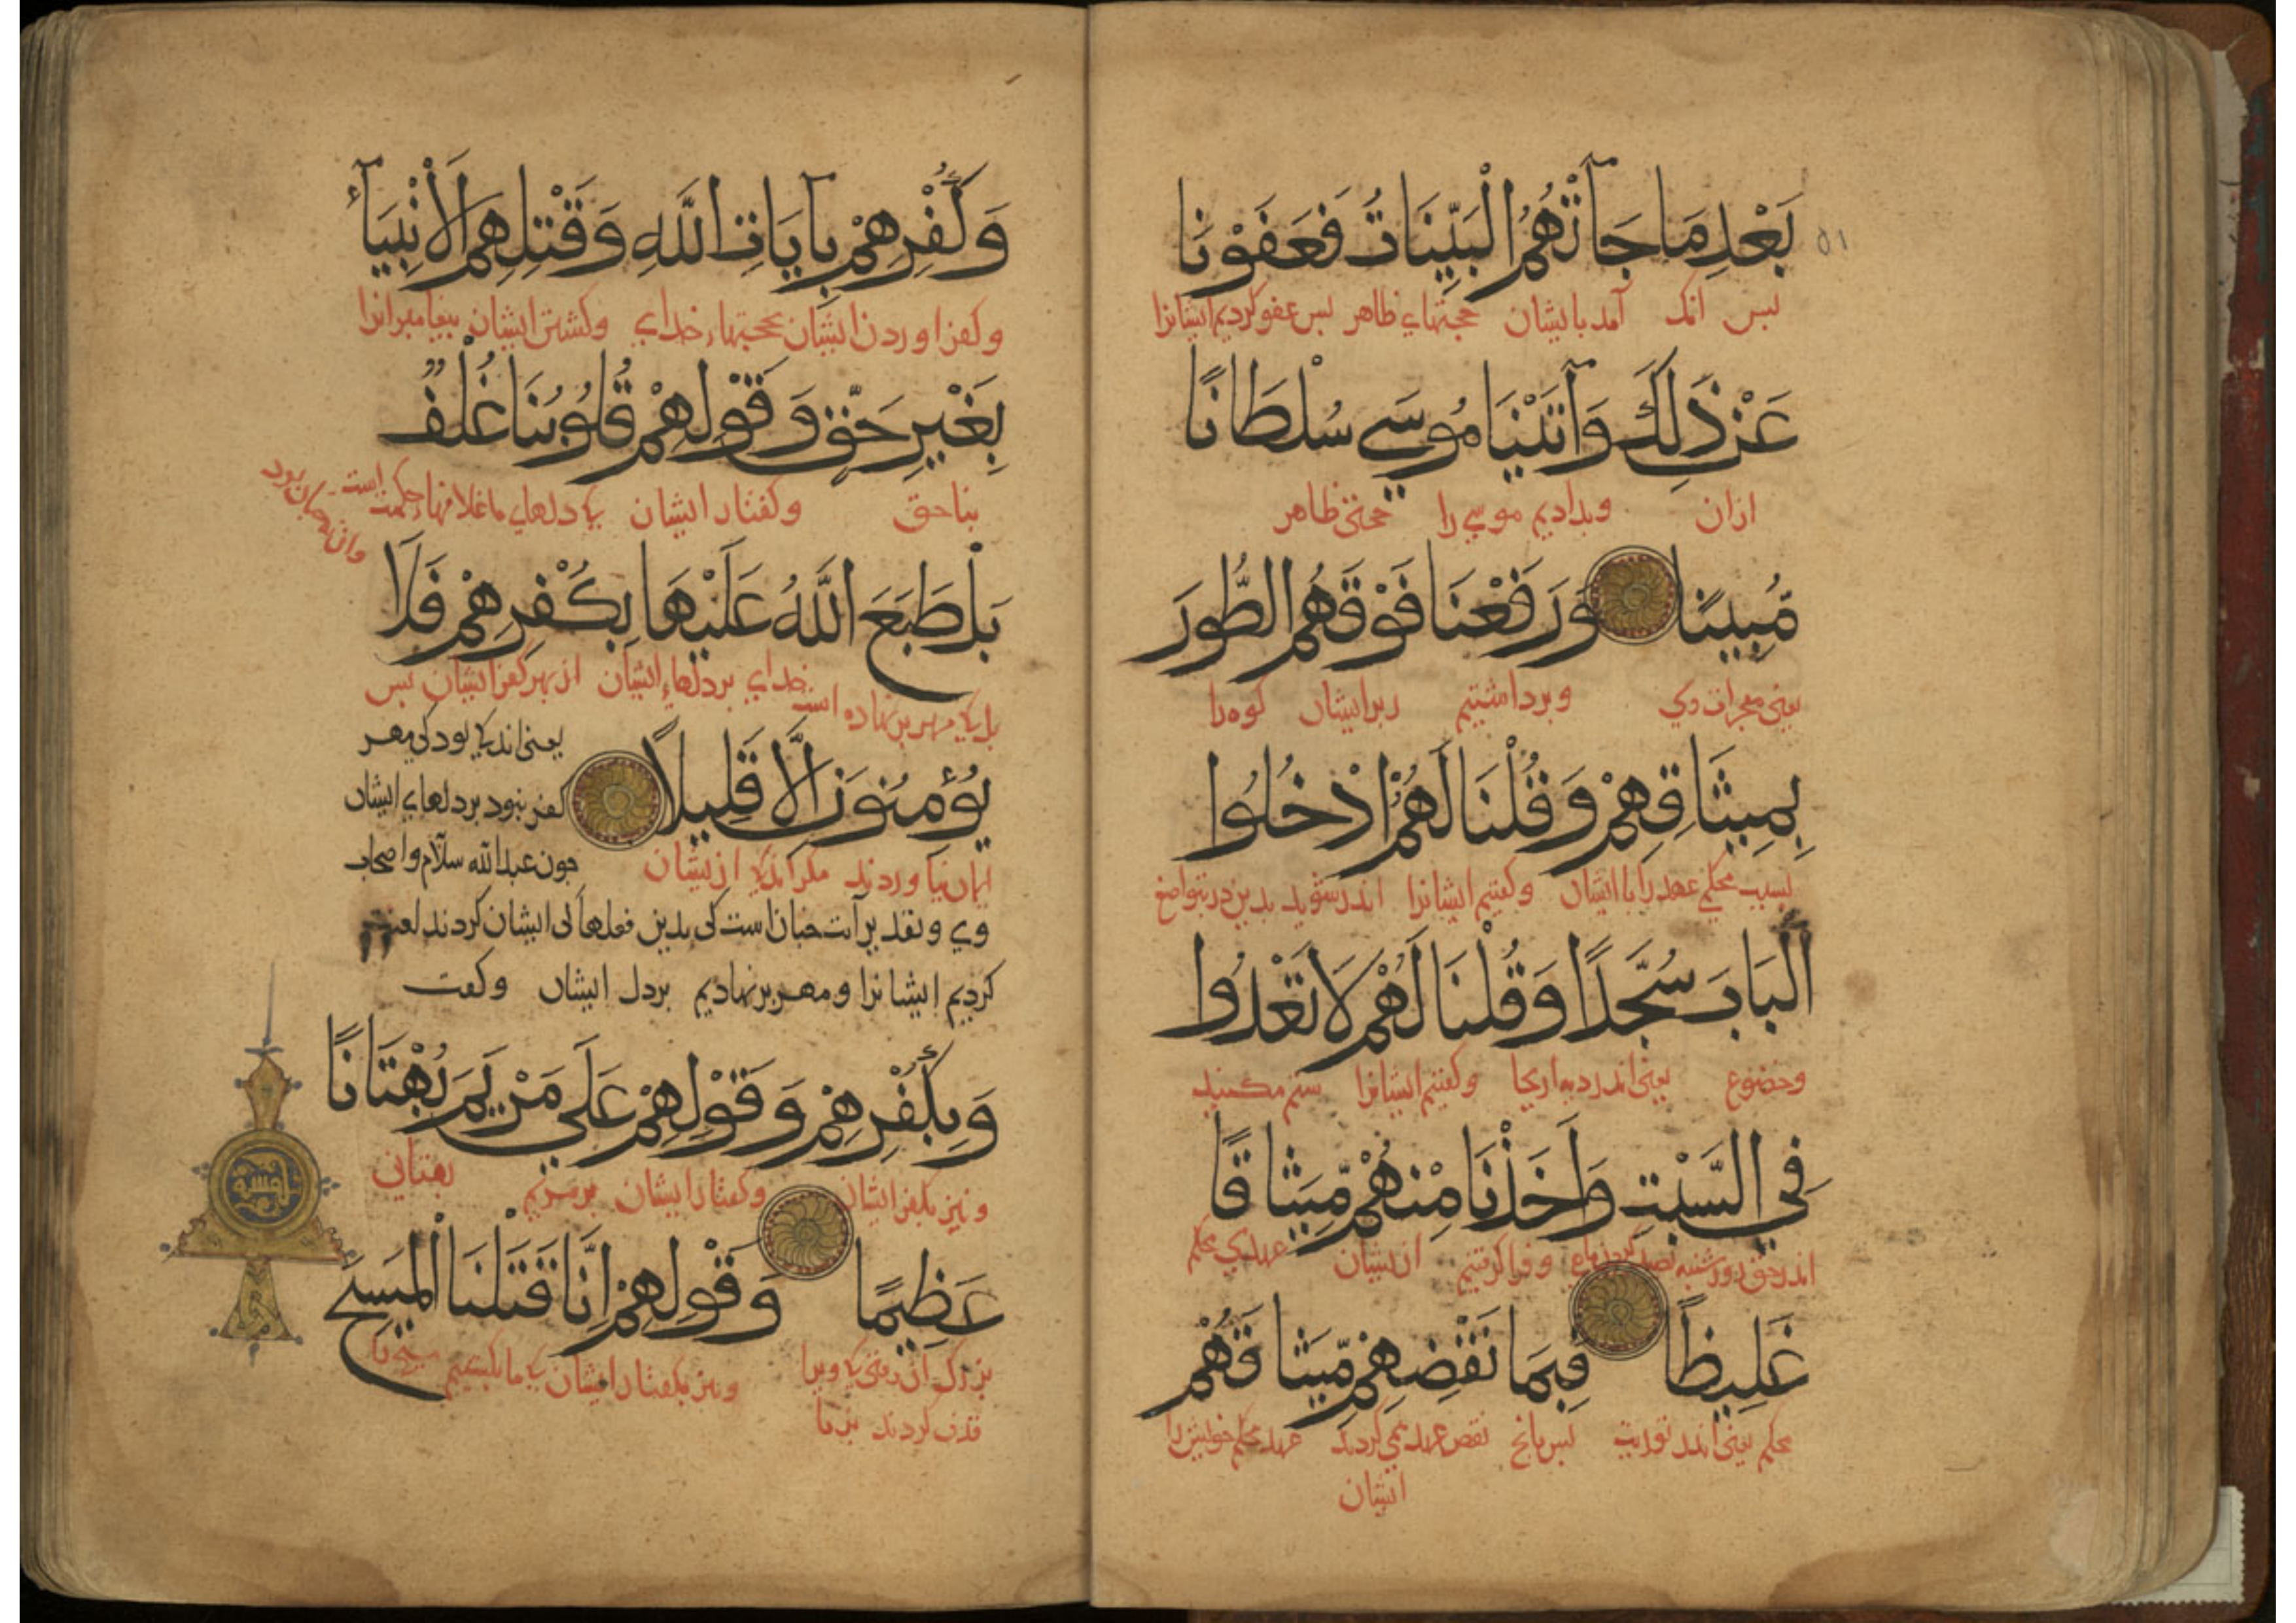 بَعْدِ مَا جَآتْهُمُ الْبَيِّنَاتُ فَعَفَوْنَا
٥١
بس انک آمد بایشان حجتهاء ظاهر بس عفو کردیم ایشانرا
عَنْ ذَلِكَ وَآتَيْنَا مُوسَي سُلْطَانًا
ازان وبدادیم موسی را حجتی ظاهر
مُبِينًا وَرَفَعْنَا فَوْقَهُمُ الطُّورَ
یعنی معجزات وی وبرداشتیم زبر ایشان کوه را
بِمِيثَاقِهِمْ وَقُلْنَا لَهُمُ ادْخُلُوا
بسبب محکمی عهد را با ایشان وکفتیم ایشانرا اندر شوید بدین در بتواضع
الْبَابَ سُجَّدًا وَقُلْنَا لَهُمْ لَا تَعْدُوا
وخضوع یعنی اندر دیه اریحا وکفتیم ایشانرا ستم مکنید
فِي السَّبْتِ وَأَخَذْنَا مِنْهُمْ مِّيثَاقًا
اندر حق روز شنبه بصید وفرا کرفتیم از ایشان عهدی محکم
غَلِيظًا فَبِمَا نَقْضِهِمْ مِّيثَاقَهُمْ
محکم یعنی اندر توریت بس بانج نقض عهد همی کردند عهد محکم خویش را
ایشان
وَكُفْرِهِمْ بِآيَاتِ اللَّهِ وَقَتْلِهِمُ الْأَنْبِيَآءَ
وکفر اوردن ایشان بحجتهاء خدای وکشتن ایشان بیغامبرانرا
بِغَيْرِ حَقٍّ وَقَوْلِهِمْ قُلُوبُنَا غُلْفٌ
بناحق وکفتار ایشان کی دلهای ما غلافهاء حکمت است
بَلْ طَبَعَ اللَّهُ عَلَيْهَا بِكُفْرِهِمْ فَلَا
بل کی مهر بر نهاده است خدای بر دلهاء ایشان از بهر کفر ایشان بس
یعنی اندکی بود کی مهر
يُؤْمِنُونَ إِلَّا قَلِيلًا
کفر نبود بر دلهای ایشان
ایمان نیاوردند مکر اندکی از ایشان
جون عبدالله سلآم واصحاب
وی وتقدیر آیت جنان است کی بدین فعلها کی ایشان کردند لعنت
کردیم ایشانرا ومهر بر نهادیم بر دل ایشان وکفت
وَبِكُفْرِهِمْ وَقَوْلِهِمْ عَلَي مَرْيَمَ بُهْتَانًا
ونیز بکفر ایشان وکفتار ایشان بر مریم بهتانی
عَظِيمًا وَقَوْلِهِمْ إِنَّا قَتَلْنَا الْمَسِيحَ
بزرک ان وقتی کی ویرا ونیز بکفتار ایشان کی ما بکشتیم مسیح را
قذف کردند بزنا